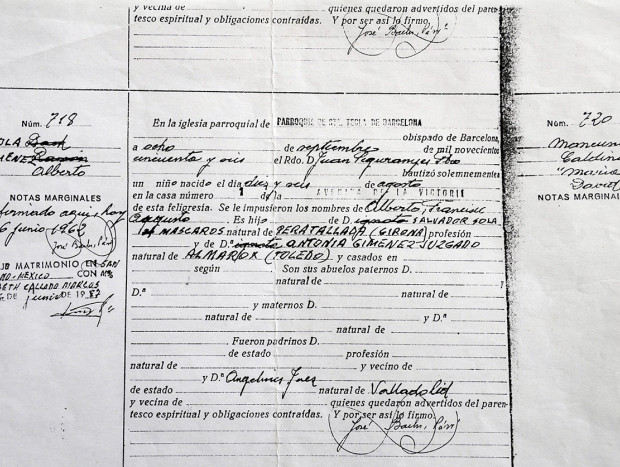 y vecina de
quienes quedaron advertidos del paren-
tesco espiritual y obligaciones contraídas. Y por ser así lo firmo,
José Bachs, Párr.
Núm. 718
Alberto
NOTAS MARGINALES
Confirmado aquí, hoy
6 junio 1962
MATRIMONIO EN SAN
MEXICO CON Mª
DE junio DE 19
En la iglesia parroquial de PARROQUIA DE STA. TECLA DE BARCELONA
obispado de Barcelona,
a ocho de septiembre de mil novecientos
cincuenta y seis el Rdo. D. Juan Pbro
bautizó solemnemente
un niño nacido el día diez y seis de agosto
en la casa número 1 de la AVENIDA DE LA VICTORIA
de esta feligresía. Se le impusieron los nombres de Alberto, Francisco
Augusto Es hijo de D. ignoto SALVADOR SOLA
MASCAROS natural de PERATALLADA (GIRONA) profesión
y de D.ª ignota ANTONIA GIMENEZ JUZGADO
natural de ALMAROX (TOLEDO) y casados en
según Son sus abuelos paternos D.
natural de
D.ª natural de
y maternos D.
natural de y D.ª
natural de
Fueron padrinos D.
de estado profesión
natural de y vecino de
y D.ª Angelines
de estado natural de Valladolid
y vecina de quienes quedaron advertidos del paren-
tesco espiritual y obligaciones contraídas. Y por ser así lo firmo,
José Bachs, Párr.
Núm. 720
David
NOTAS MARGINAL